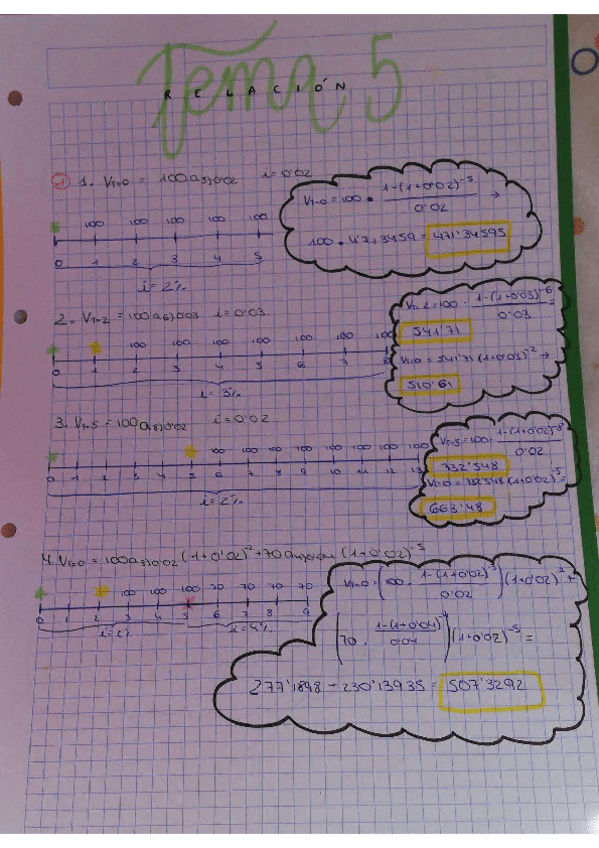 Tema 5
RELACIÓN
① 1. Vt=0 = 100a5⌉0'02 i=0'02
100 100 100 100 100
0 1 2 3 4 5
i=2%
Vt=0=100 • 1-(1+0'02)^-5 / 0'02 →
100 • 4'713459 = 471'34595
2. Vt=2 = 100a6⌉0'03 i=0'03
100 100 100 100 100 100
0 1 2 3 4 5 6 7
Vt=2=100 · 1-(1+0'03)^-6 / 0'03 =
541'71
Vt=0 = 541'71(1+0'03)^-2 →
510'61
3. Vt=5=100a8⌉0'02 i=0'02
100 100 100 100 100 100 100 100
0 1 2 3 4 5 6 7 8 9 10 11 12 13
i=2%
Vt=5=100· 1-(1+0'02)^-8 / 0'02
732'548
Vt=0= 732'548(1+0'02)^-5=
663'48
4. Vt=0= 100a3⌉0'02 (1+0'02)^-2+70a4⌉0'04 (1+0'02)^-5
100 100 100 70 70 70 70
0 1 2 3 4 5 6 7 8 9
i=2% i=4%
Vt=0=(100· 1-(1+0'02)^-3 / 0'02)(1+0'02)^-2 +
(70 · 1-(1+0'04)^-4 / 0'04)(1+0'02)^-5 =
277'1898 + 230'13935 = 507'3292